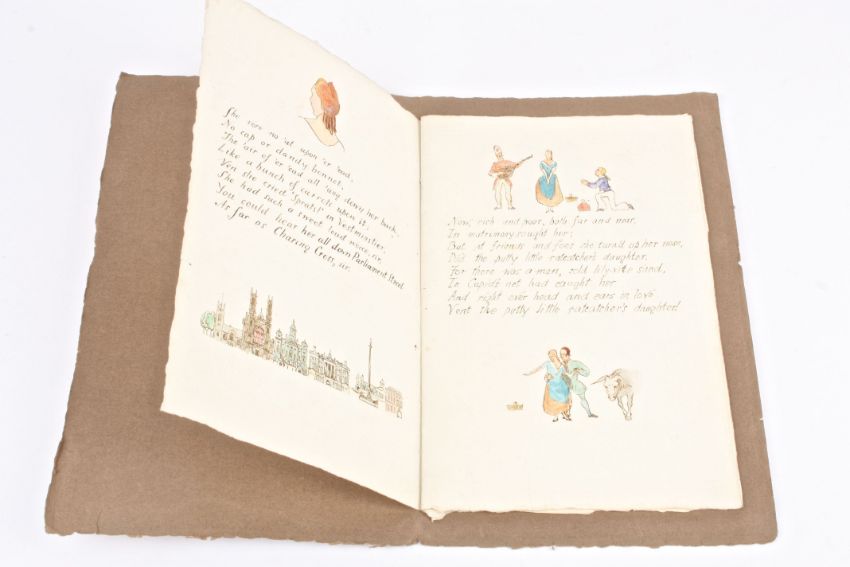 She vore no 'at upon 'er 'ead,
No cap or dandy bonnet,
The 'air of 'er 'ead all 'ung down her back,
Like a bunch of carrots upon it;
Ven she cried "Sprats!" in Vestminster,
She had such a sweet loud voice, sir,
You could hear her all down Parliament Street
As far as Charing Cross, sir.
Now, rich and poor, both far and near,
In matrimony sought her;
But at friends and foes she turn'd up her nose,
Did the putty little ratcatcher's daughter.
For there was a man, sold lily-vite sand,
In Cupid's net had caught her
And right over head and ears in love
Vent the putty little ratcatcher's daughter!